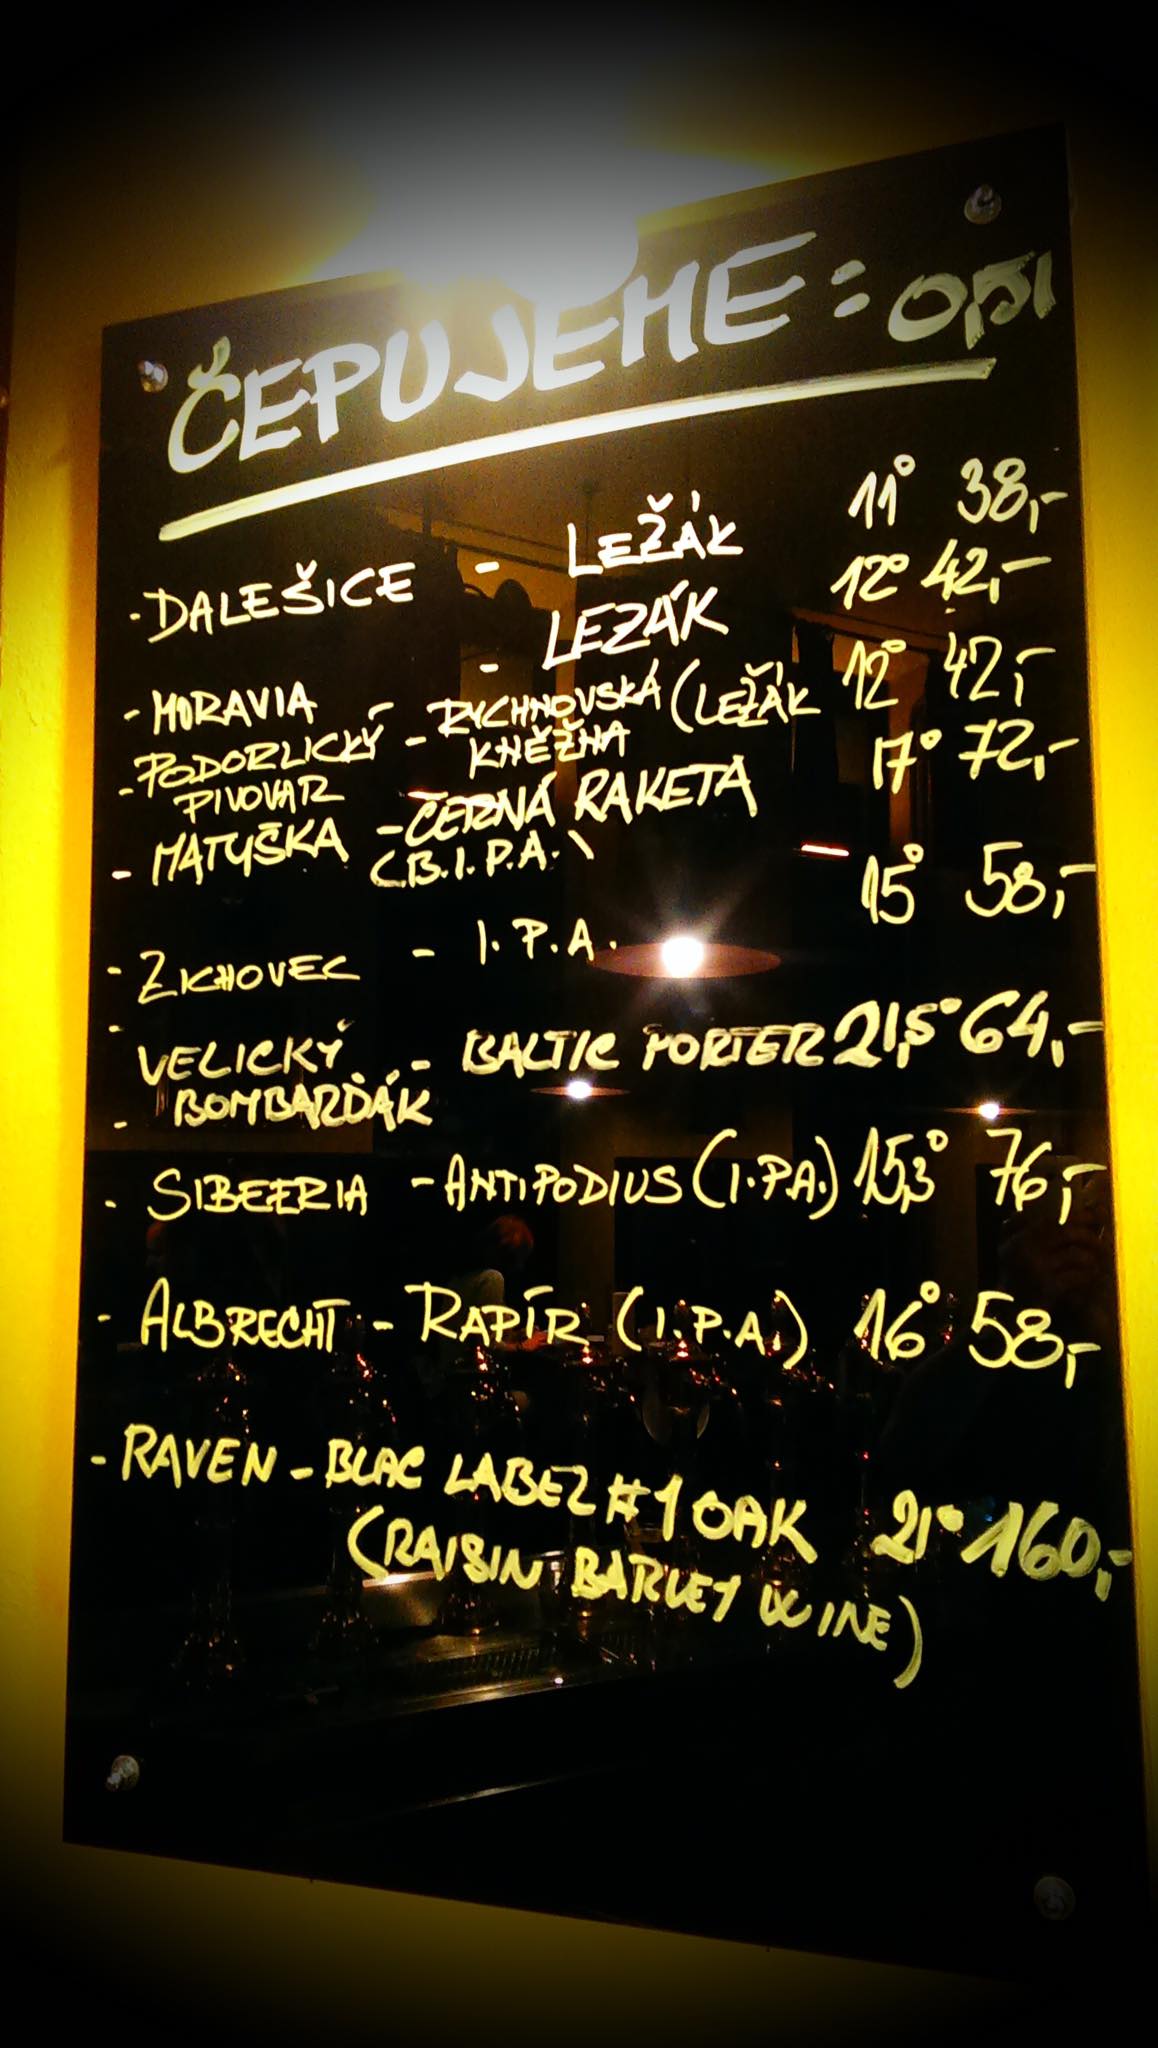 ČEPUJEME: 0,5l
- DALEŠICE - LEŽÁK 11° 38,-
- MORAVIA - LEZÁK 12° 42,-
- PODORLICKÝ - RYCHNOVSKÁ (LEŽÁK 12° 42,-
PIVOVAR KNĚŽNA
- MATUŠKA - ČERNÁ RAKETA 17° 72,-
(B.I.P.A.)
- ZICHOVEC - I.P.A. 15° 58,-
- VELICKÝ - BALTIC PORTER 21,5° 64,-
- BOMBARĎÁK
- SIBEERIA - ANTIPODIUS (I.P.A.) 15,3° 76,-
- ALBRECHT - RAPÍR (I.P.A) 16° 58,-
- RAVEN - BLAC LABEL #1 OAK 21° 160,-
(RAISIN BARLEY WINE)